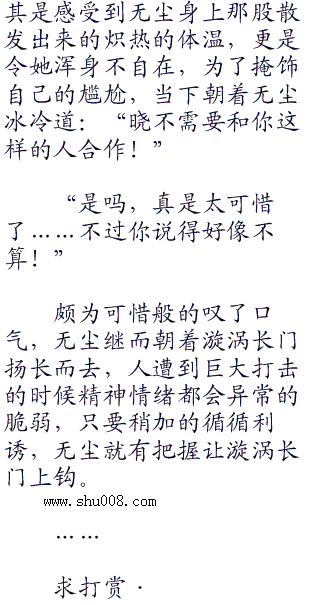 其是感受到无尘身上那股散
发出来的炽热的体温，更是
令她浑身不自在，为了掩饰
自己的尴尬，当下朝着无尘
冰冷道：“晓不需要和你这
样的人合作！”
“是吗，真是太可惜
了……不过你说得好像不
算！”
颇为可惜般的叹了口
气，无尘继而朝着漩涡长门
扬长而去，人遭到巨大打击
的时候精神情绪都会异常的
脆弱，只要稍加的循循利
诱，无尘就有把握让漩涡长
门上钩。
www.shu008.com
……
求打赏·